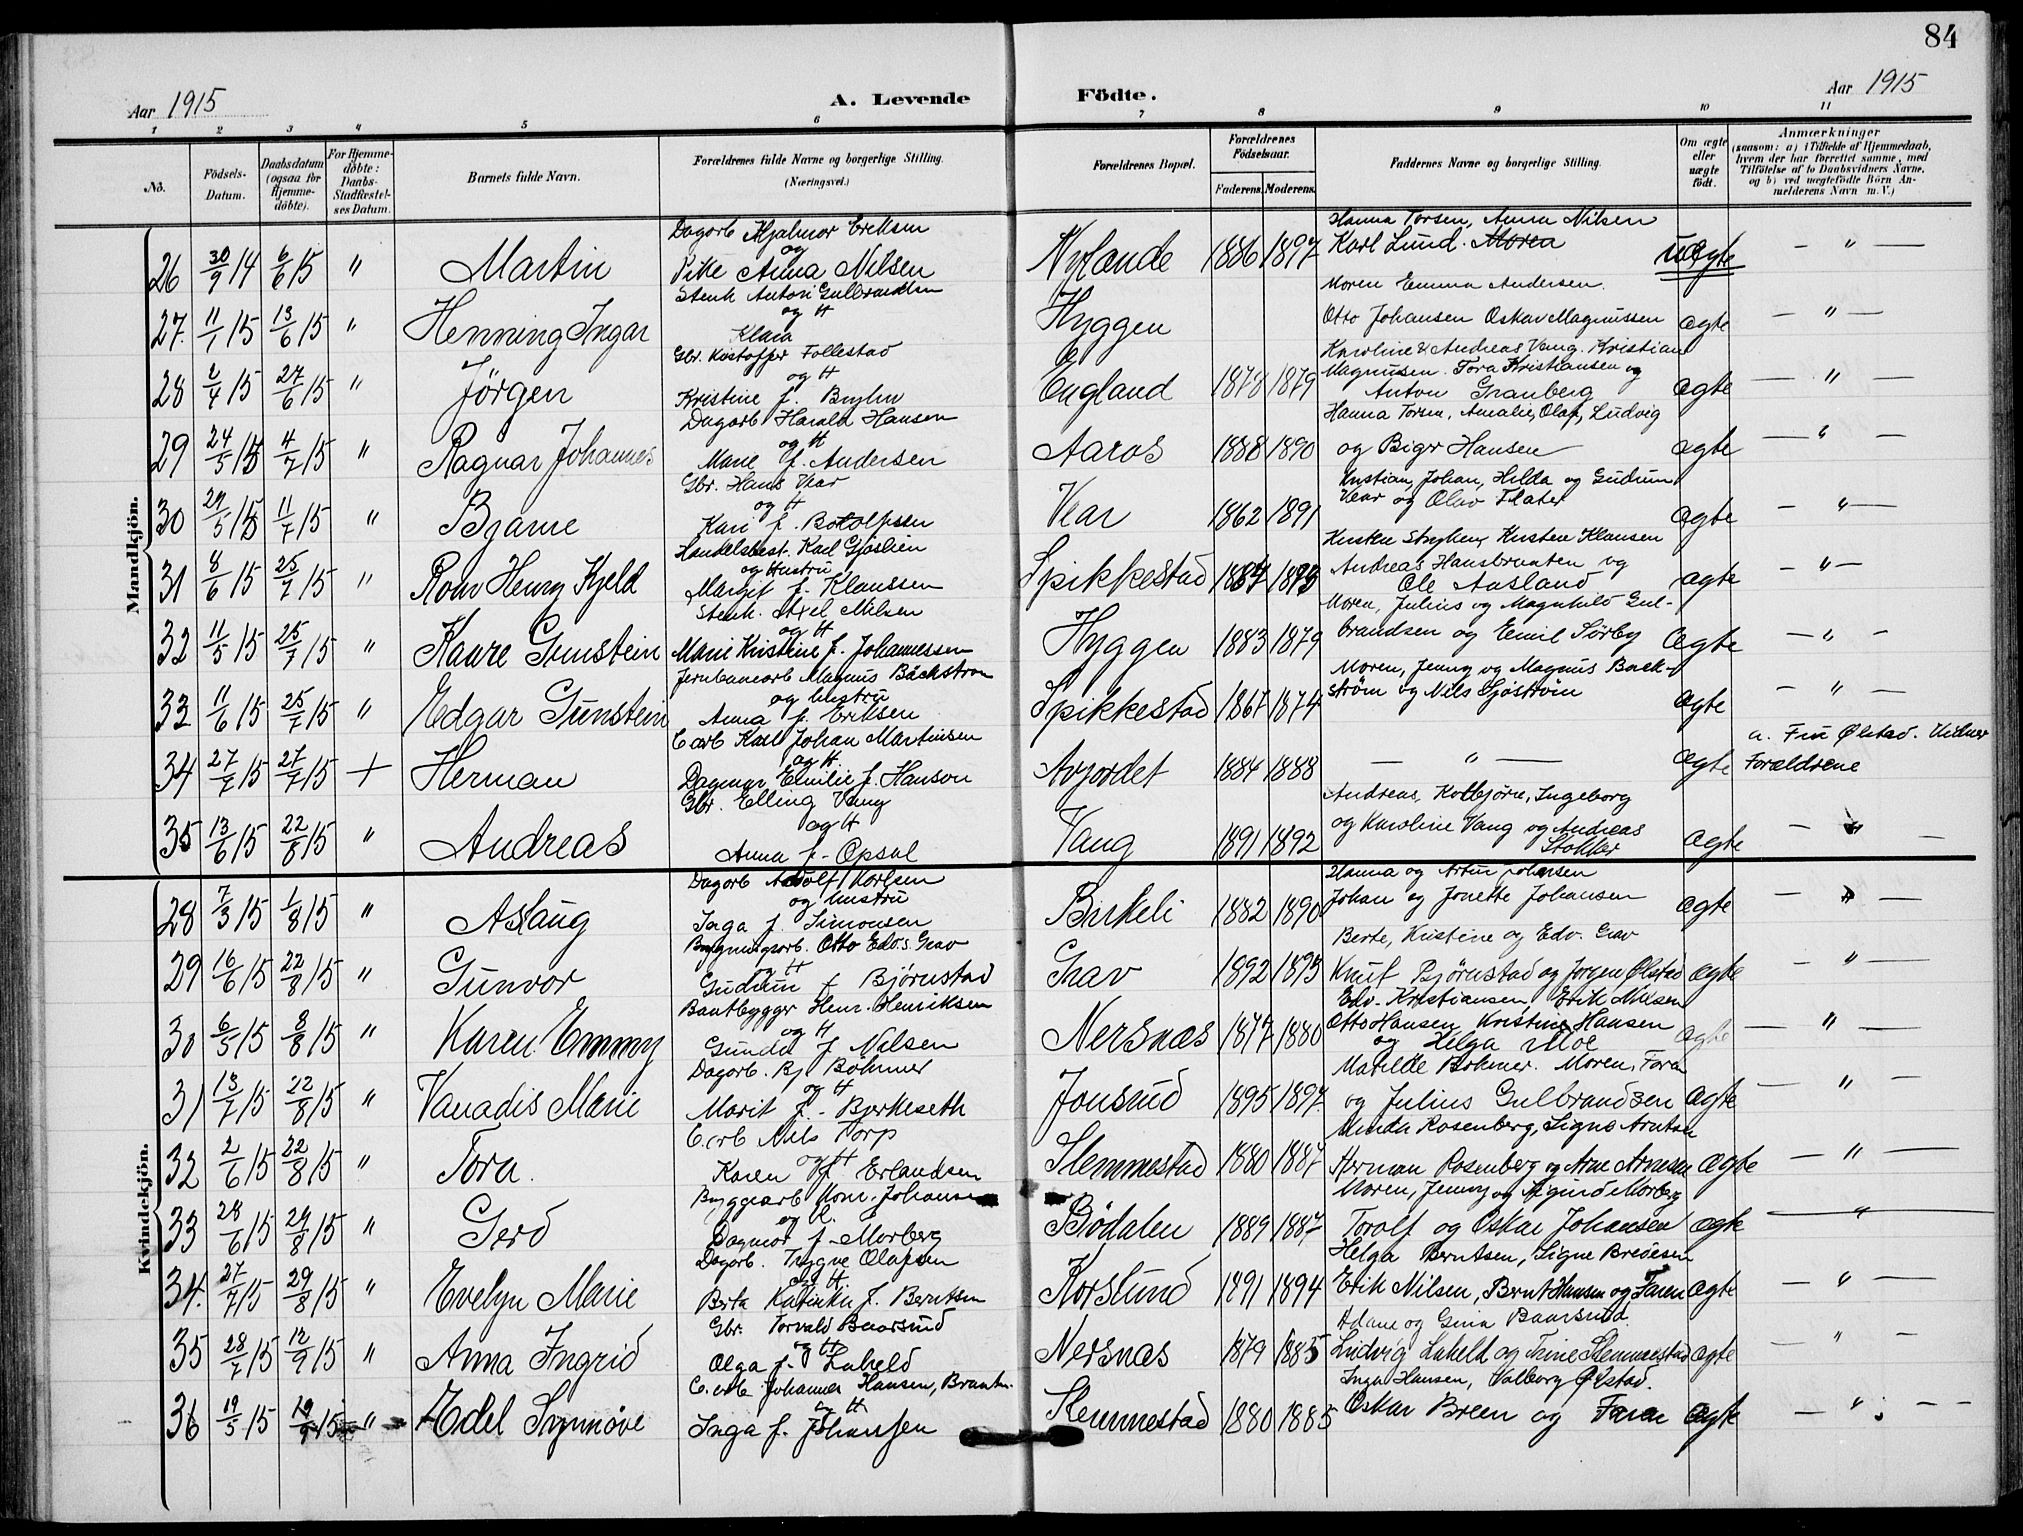 84
Aar 1915 A. Levende Födte. Aar 1915
1 2 3 4 5 6 7 8 9 10 11
No.
Födsels-Datum.
Daabsdatum (ogsaa for Hjemme-döbte).
For Hjemme-döbte: Daabs-Stadfæstel-ses Datum.
Barnets fulde Navn.
Forældrenes fulde Navne og borgerlige Stilling.
(Næringsvei.)
Forældrenes Bopæl.
Forældrenes Födselsaar.
Faderens. Moderens.
Faddernes Navne og borgerlige Stilling.
Om ægte eller uægte födt.
Anmærkninger
(saasom: a) i Tilfælde af Hjemmedaab,
hvem der har forrettet samme, med
Tilföielse af to Daabsvidners Navne,
og b) ved uægtefödte Börn An-
melderens Navn m. V.)
Mandkjön.
Dagarb Hjalmar Eriksen Hanna Torsen, Anna Nilsen
og
26 30/9 14 6/6 15 " Martin Pike Anna Nilsen Nylande 1886 1897 Karl Lund. Moren uægte — " —
Stenh Anton Gulbrandsen Moren Emma Andersen.
og H
27. 11/1 15 13/6 15 " Henning Ingar Klara Hyggen Otto Johansen Oskar Magnussen ægte — " —
Gbr. Kristoffer Follestad Karoline & Andreas Vang. Kristian
og H Magnusen. Tora Kristiansen og
28 2/4 15 27/6 15 " Jørgen Kristine f. England 1878 1879 Anton Granberg ægte — " —
Dagarb Harald Hansen Hanna Torsen, Amalie, Olaf, Ludvig
og H
29 24/5 15 4/7 15 " Ragnar Johannes Marie f. Andersen Aaros 1888 1890 og Biger Hansen ægte — " —
Gbr. Hans Vear Kristian, Johan, Hilda og Gudrun
og H Vear og Olav
30 29/5 15 11/7 15 " Bjarne Kari f. Botolfssen Vear 1862 1891 ægte — " —
Handelsbest. Karl Gjøslien Kirsten Klausen
og Hustru Andreas Hansbraaten og
31 8/6 15 25/7 15 " Roar Henry Kjeld Margit f. Klaussen Spikkestad 1887 1893 Ole Aasland ægte — " —
Stenh. Axel Nilsen Moren, Julius og Magnhild Gul-
og H
32 11/5 15 25/7 15 " Kaare Gunstein Marie Kristine f. Johannessen Hyggen 1883 1879 brandsen og Emil Sørby ægte — " —
Jernbanearb Magnus Bäckstrøm Moren, Jenny og Magnus Back-
og hustru
33 11/6 15 25/7 15 " Edgar Gunstein Anna f. Eriksen Spikkestad 1867 1874 strøm og Nils Sjøstrøm ægte — " —
C arb Karl Johan Martinsen a. Fru Ølstad. Vidner
og H
34 27/7 15 27/7 15 + Herman Dagmar Emilie f. Hanson 1884 1888 — " — ægte Forældrene
Gbr. Elling Vang Andreas, Kolbjørn, Ingeborg
og H og Karoline Vang og Andreas
35 13/6 15 22/8 15 " Andreas Anna f. Opsal Vang 1891 1892 Stokker ægte — " —
Kvindekjön.
Dagarb Adolf Karlsen Hanna og Artur Johansen
og hustru
28 7/3 15 1/8 15 " Aslaug Inga f. Simonsen Birkeli 1882 1890 Johan og Jonette Johansen ægte — " —
Bygningsarb. Otto Edv.s. Grav Berte, Kristine og Edv. Grav
og H
29 16/6 15 22/8 15 " Gunvor Gudrun f Bjørnstad Grav 1892 1893 Knut Bjørnstad og Jørgen Ølstad ægte — " —
Baatbygger Henr. Henriksen Edv. Kristiansen, Erik Nilsen
og H Otto Hansen Kristine Hansen
30 6/5 15 8/8 15 " Karen Emmy Gunda f Nilsen Nersnæs 1877 1880 og Helga Moe ægte — " —
Dagarb. Bj Bohmer Matilde Bohmer. Moren, Faren
og H
31 13/7 15 22/8 15 " Vanadis Marie Marit f. Bjerkeseth Jonsrud 1895 1897. og Julius Gulbrandsen ægte — " —
C. arb Nils Torp Minda Rosenberg, Signe Arntsen
og H
32 2/6 15 22/8 15 " Tora. Karen f. Erlandsen Slemmestad 1880 1887 Herman Rosenberg og Arne Arnesen ægte — " —
Byggearb Konr. Johansen Moren, Jenny og Sigurd Morberg
33 28/6 15 29/8 15 " Gerd Dagmar f. Morberg Bödalen 1889 1887 Torolf og Oskar Johansen ægte — " —
Dagarb. Trygve Olafsen Helga Berntsen, Signe Bredesen
og H.
34. 27/7 15 29/8 15 " Evelyn Marie Berta Katinka f. Berntsen Korslund 1891 1894 Erik Nilsen, Bernt Hansen og Faren ægte — " —
Gbr. Torvald Baarsrud og Gina Baarsrud.
og H
35 28/7 15 12/9 15 " Anna Ingrid Olga f. Lakeld Nersnæs 1879 1885 Ludvig Lakeld og Trine Slemmestad ægte — " —
C. arb. Johannes Hansen, Inga Hansen, Valborg Ølstad.
og H
36 19/5 15 19/9 15 " Edel Synnøve Inga f. Johansen Slemmestad 1880 1885 Oskar Breen og Faren ægte — " —